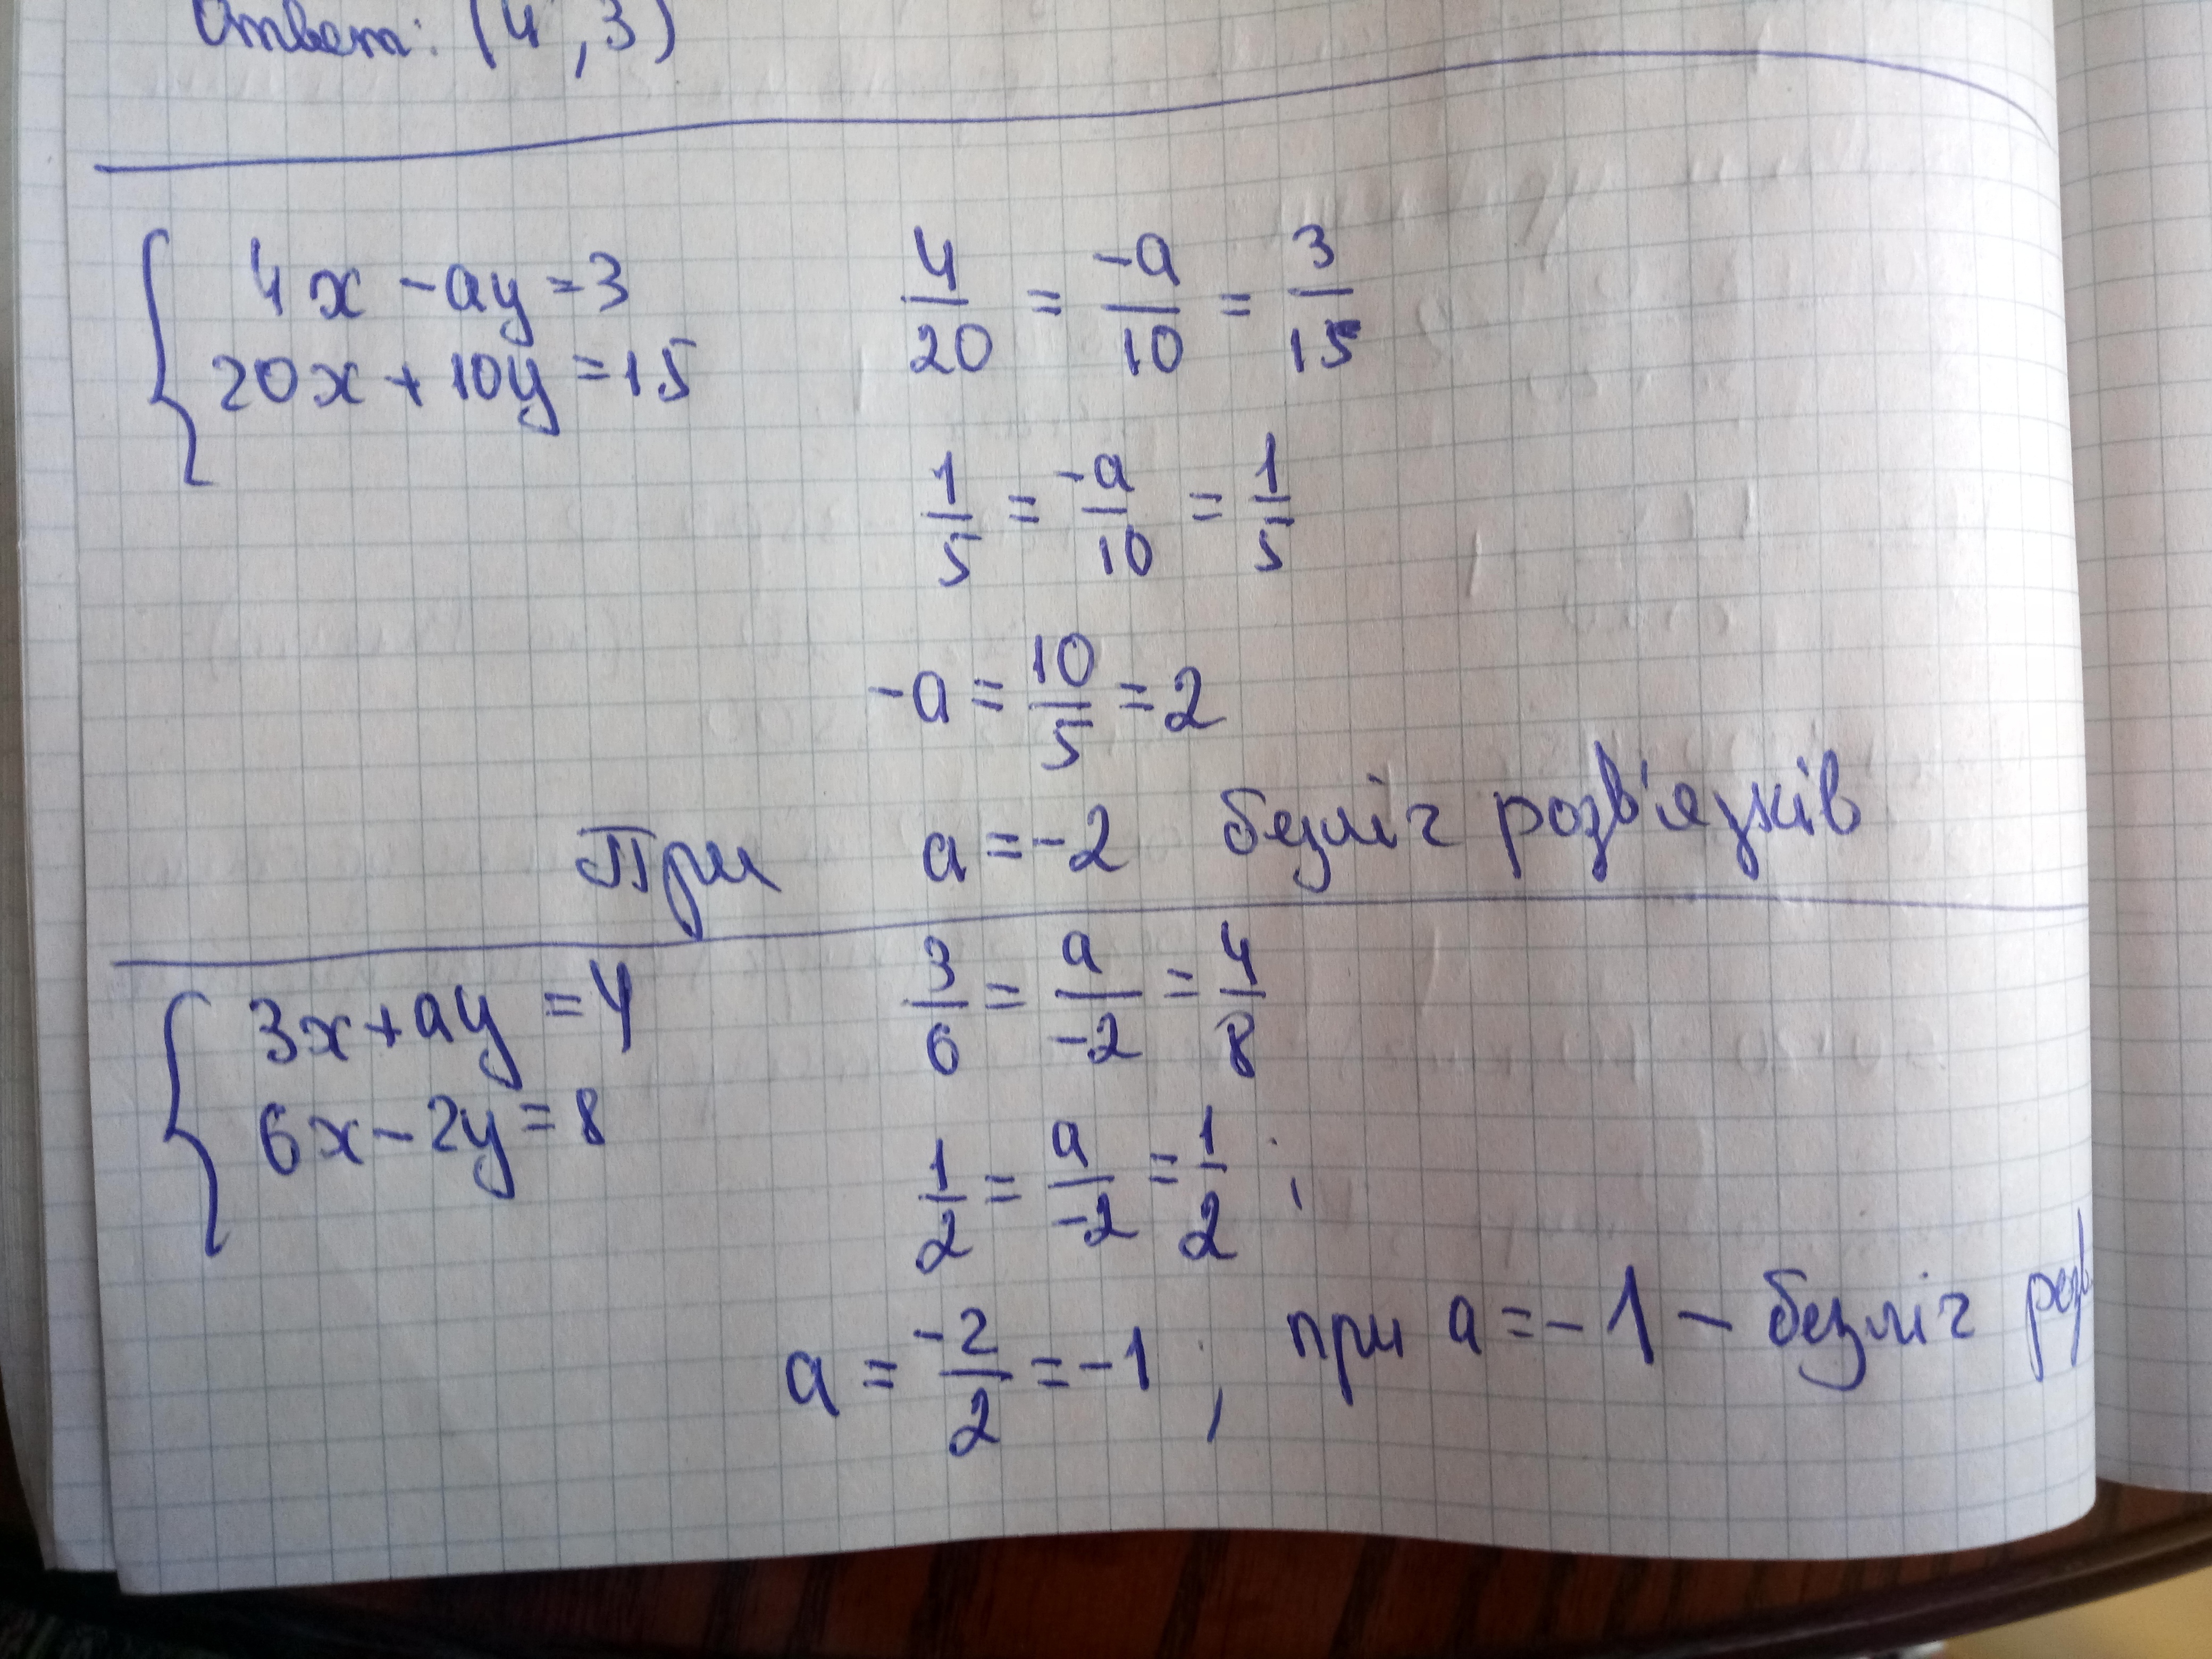 Ответ: (4, 3)
4x - ay = 3
20x + 10y = 15
4/20 = -a/10 = 3/15
1/5 = -a/10 = 1/5
-a = 10/5 = 2
При a = -2 безліч розв'язків
3x + ay = 4
6x - 2y = 8
3/6 = a/-2 = 4/8
1/2 = a/-2 = 1/2 ;
a = -2/2 = -1 , при a = -1 – безліч розв